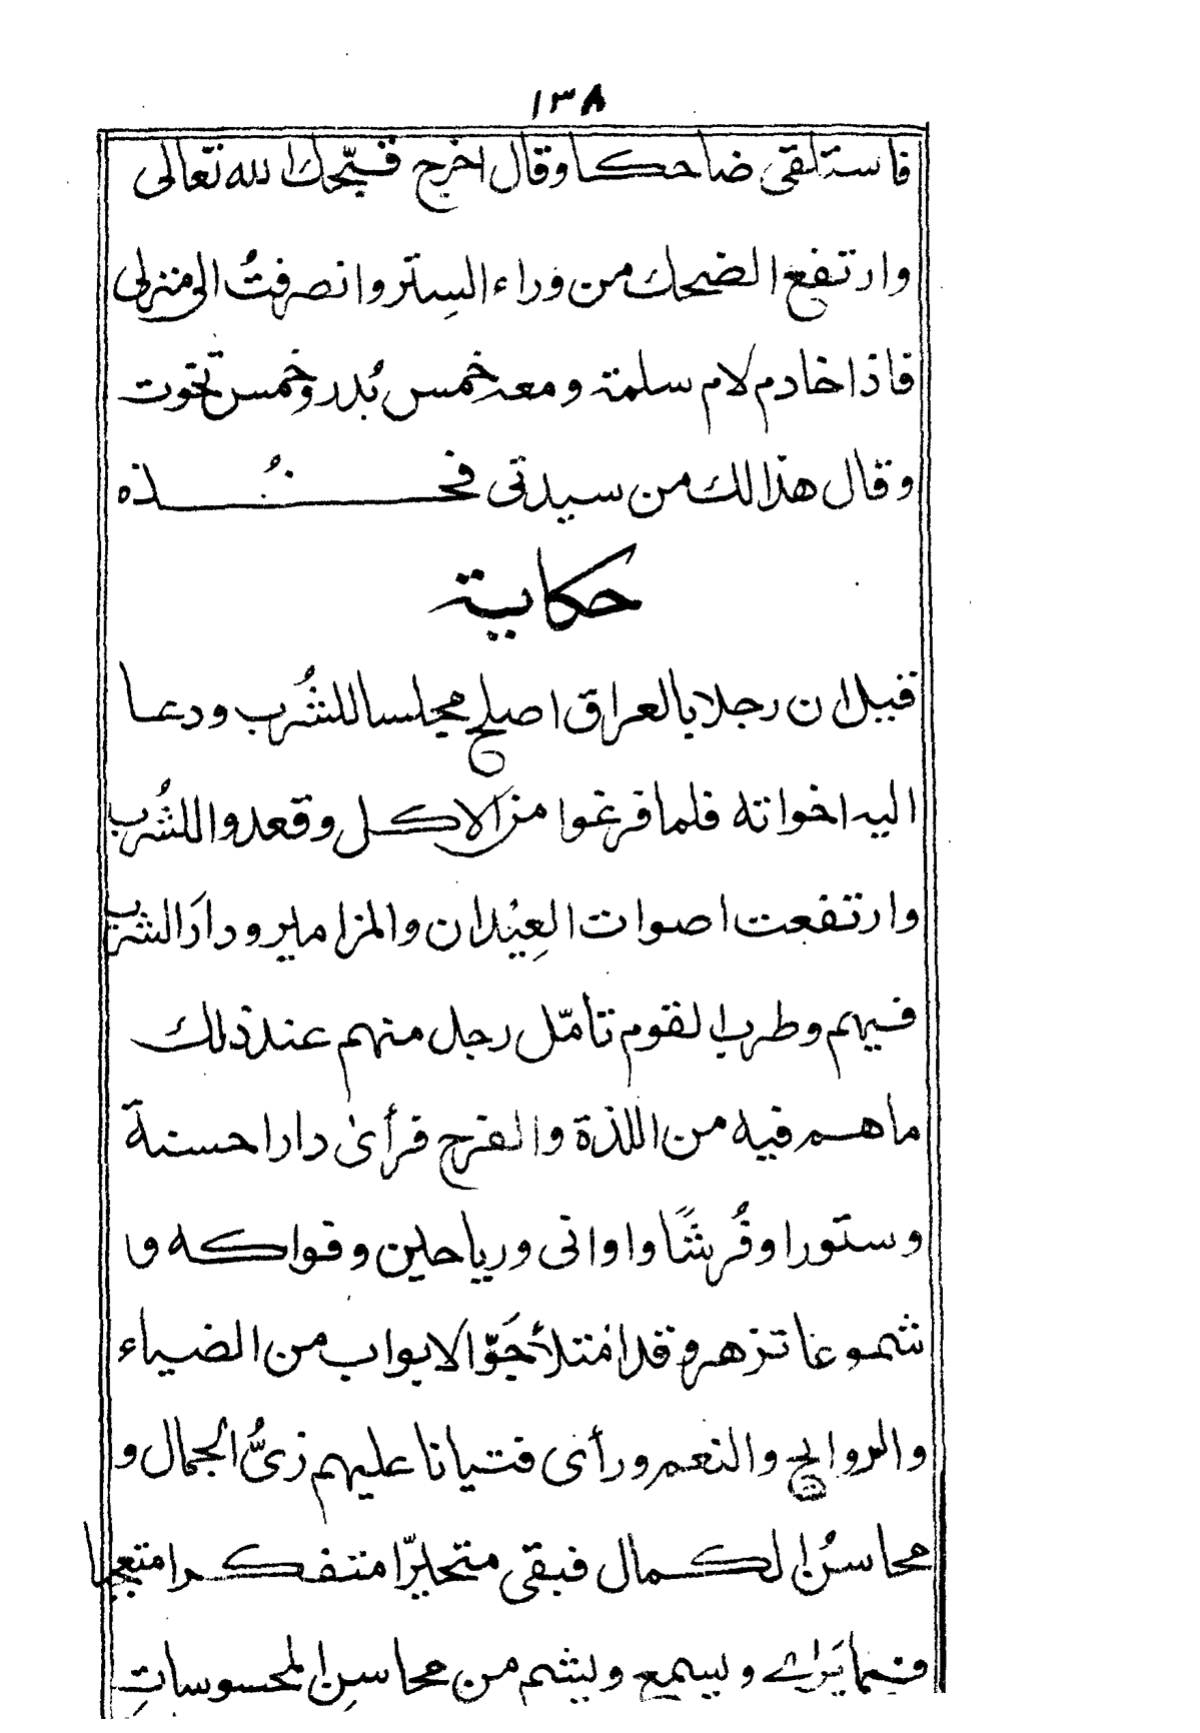 ١٣٨
فاستلقى ضاحكا وقال اخرج قبّحك الله تعالى
وارتفع الضحك من وراء السِتر وانصرفتُ الى منزلى
فاذا خادم لام سلمة ومعه خمس بُدر وخمس تخوت
وقال هذا لك من سيدتى فخُذه
حكاية
قيل ان رجلا بالعراق اصلح مجلسا للشُرب ودعا
اليه اخواته فلما فرغوا من الاكل وقعدوا للشُرب
وارتفعت اصوات العِيْدان والمزامير ودارَ الشرب
فيهم وطرب القوم تأمّل رجل منهم عند ذلك
ما هم فيه من اللذة والفرح فرأى دارا حسنة
وستورا وفُرشًا واوانى ورياحين وفواكه و
شموعا تزهر وقد امْتلأ جَوّ الابواب من الضياء
والروايح والنعم ورأى فتيانا عليهم زىُّ الجمال و
محاسنُ الكمال فبقى متحيرّا متفكرا متعجبا
فيما يَراے ويسمع ويشم من محاسِن المحسوساتِ